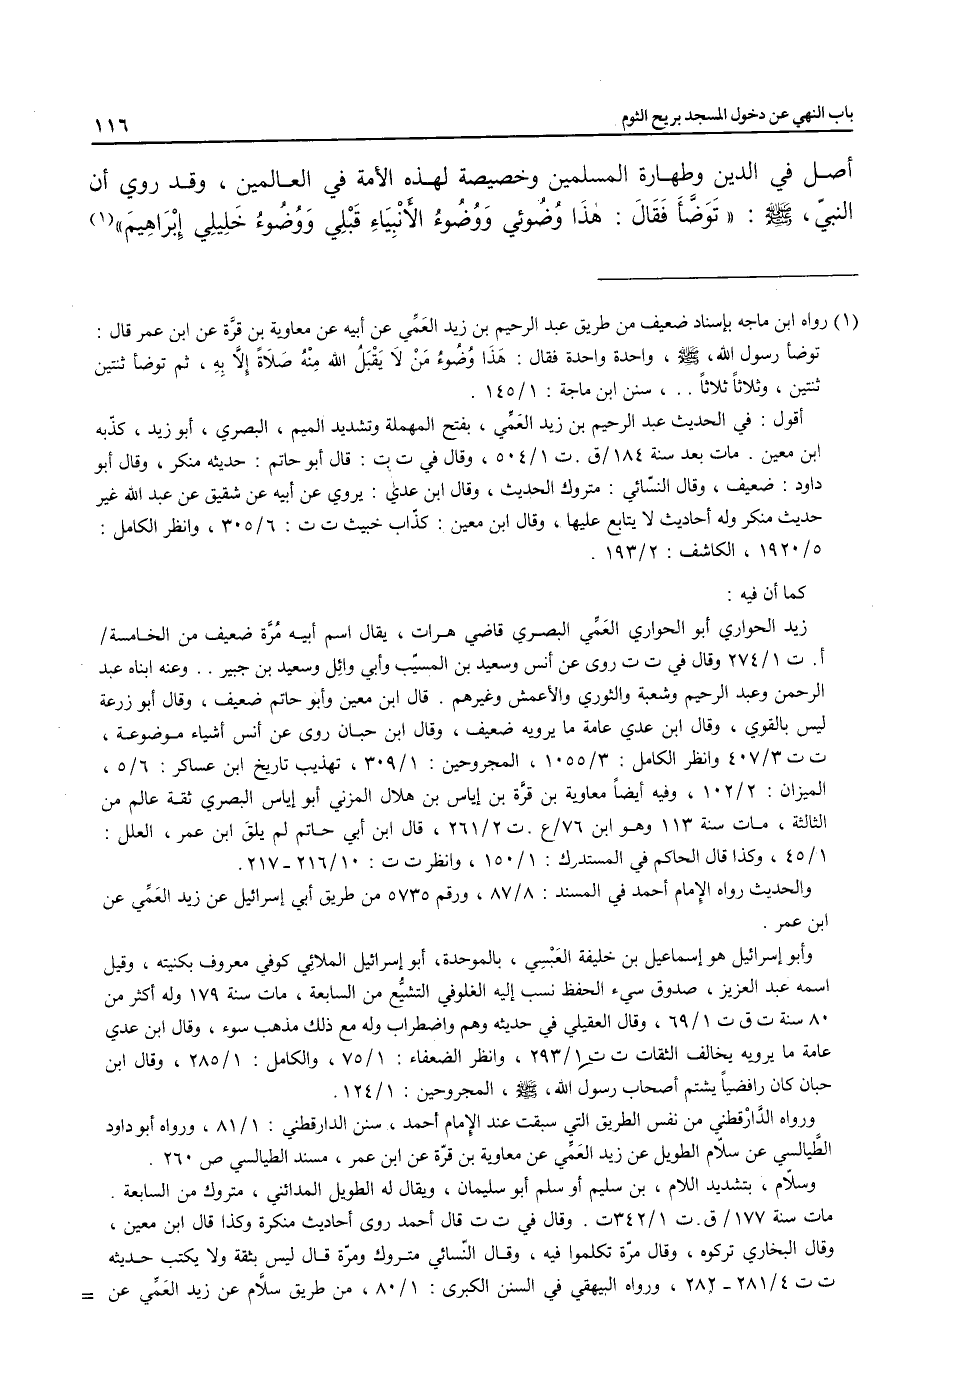 باب النهي عن دخول المسجد بريح الثوم
١١٦
أصل في الدين وطهارة المسلمين وخصيصة لهذه الأمة في العالمين ، وقد روي أن
النبيّ، ﷺ : « تَوَضَّأَ فَقَالَ : هٰذَا وُضُوئي وَوُضُوءُ الأَنْبِيَاءِ قَبْلِي وَوُضُوءُ خَلِيلِي إِبْرَاهِيمَ»(١)
(١) رواه ابن ماجه بإسناد ضعيف من طريق عبد الرحيم بن زيد العَمِّي عن أبيه عن معاوية بن قرَّة عن ابن عمر قال :
توضأ رسول الله، ﷺ ، واحدة واحدة فقال : هَذَا وُضُوءُ مَنْ لَا يَقْبَلُ الله مِنْهُ صَلَاةً إِلَّا بِهِ ، ثم توضأ ثنتين
ثنتين ، وثلاثاً ثلاثاً . . ، سنن ابن ماجة : ١٤٥/١ .
أقول : في الحديث عبد الرحيم بن زيد العَمِّي ، بفتح المهملة وتشديد الميم ، البصري ، أبو زيد ، كذّبه
ابن معين . مات بعد سنة ١٨٤/ق .ت ٥٠٤/١ ، وقال في ت ت : قال أبو حاتم : حديثه منكر ، وقال أبو
داود : ضعيف ، وقال النسّائي : متروك الحديث ، وقال ابن عدي : يروي عن أبيه عن شقيق عن عبد الله غير
حديث منكر وله أحاديث لا يتابع عليها ، وقال ابن معين : كذّاب خبيث ت ت : ٣٠٥/٦ ، وانظر الكامل :
١٩٢٠/٥ ، الكاشف : ١٩٣/٢ .
كما أن فيه :
زيد الحواري أبو الحواري العَمِّي البصري قاضي هرات ، يقال اسم أبيه مُرَّة ضعيف من الخامسة/
أ. ت ٢٧٤/١ وقال في ت ت روى عن أنس وسعيد بن المسيّب وأبي وائل وسعيد بن جبير . . وعنه ابناه عبد
الرحمن وعبد الرحيم وشعبة والثوري والأعمش وغيرهم . قال ابن معين وأبو حاتم ضعيف ، وقال أبو زرعة
ليس بالقوي ، وقال ابن عدي عامة ما يرويه ضعيف ، وقال ابن حبان روى عن أنس أشياء موضوعة ،
ت ت ٤٠٧/٣ وانظر الكامل : ١٠٥٥/٣ ، المجروحين : ٣٠٩/١ ، تهذيب تاريخ ابن عساكر : ٥/٦ ،
الميزان : ١٠٢/٢ ، وفيه أيضاً معاوية بن قرَّة بن إياس بن هلال المزني أبو إياس البصري ثقة عالم من
الثالثة ، مات سنة ١١٣ وهو ابن ٧٦/ع .ت ٢٦١/٢ ، قال ابن أبي حاتم لم يلقَ ابن عمر ، العلل :
٤٥/١ ، وكذا قال الحاكم في المستدرك : ١٥٠/١ ، وانظر ت ت : ٢١٦/١٠ ـ ٢١٧.
والحديث رواه الإمام أحمد في المسند : ٨٧/٨ ، ورقم ٥٧٣٥ من طريق أبي إسرائيل عن زيد العَمِّي عن
ابن عمر .
وأبو إسرائيل هو إسماعيل بن خليفة العَبْسِي ، بالموحدة، أبو إسرائيل الملائي كوفي معروف بكنيته ، وقيل
اسمه عبد العزيز ، صدوق سيء الحفظ نسب إليه الغلوفي التشيُّع من السابعة ، مات سنة ١٧٩ وله أكثر من
٨٠ سنة ت ق ت ٦٩/١ ، وقال العقيلي في حديثه وهم واضطراب وله مع ذلك مذهب سوء ، وقال ابن عدي
عامة ما يرويه يخالف الثقات ت ت ٢٩٣/١ ، وانظر الضعفاء : ٧٥/١ ، والكامل : ٢٨٥/١ ، وقال ابن
حبان كان رافضياً يشتم أصحاب رسول الله، ﷺ ، المجروحين : ١٢٤/١ .
ورواه الدَّارْقطني من نفس الطريق التي سبقت عند الإمام أحمد ، سنن الدارقطني : ٨١/١ ، ورواه أبو داود
الطَّيالسي عن سلاّم الطويل عن زيد العَمِّي عن معاوية بن قرّة عن ابن عمر ، مسند الطيالسي ص ٢٦٠ .
وسلاّم ، بتشديد اللام ، بن سليم أو سلم أبو سليمان ، ويقال له الطويل المدائني ، متروك من السابعة .
مات سنة ١٧٧/ ق.ت ٣٤٢/١ت . وقال في ت ت قال أحمد روى أحاديث منكرة وكذا قال ابن معين ،
وقال البخاري تركوه ، وقال مرّة تكلموا فيه ، وقال النّسائي متروك ومرّة قال ليس بثقة ولا يكتب حديثه
ت ت ٢٨١/٤ ـ ٢٨٢ ، ورواه البيهقي في السنن الكبرى : ٨٠/١ ، من طريق سلاَّم عن زيد العَمِّي عن =